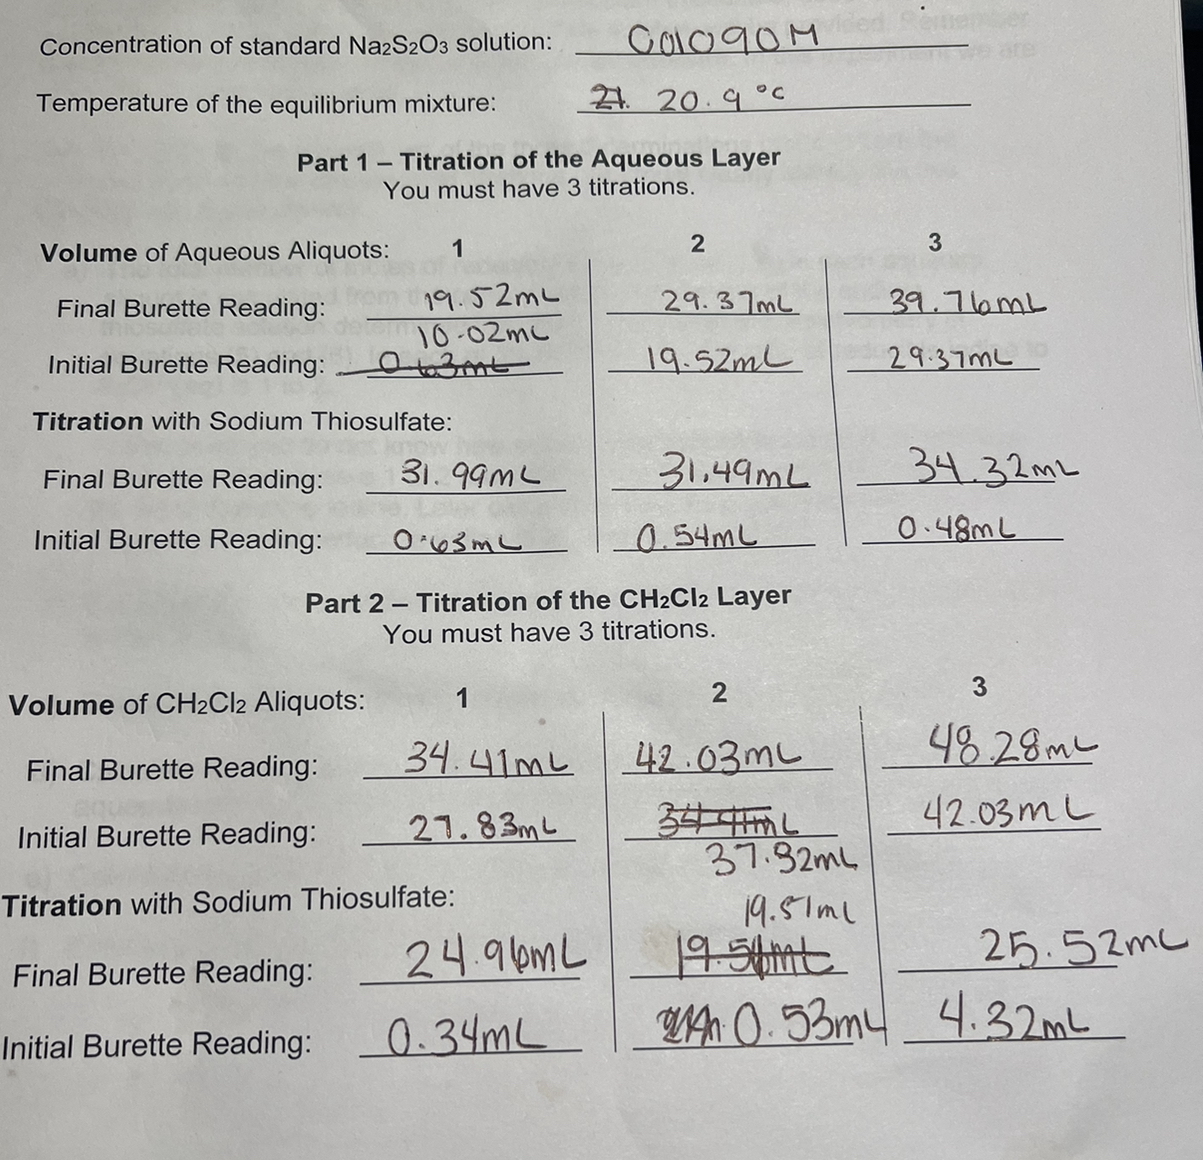 Concentration of standard Na2S2O3 solution: 0.01090M
Temperature of the equilibrium mixture: 20.9 °C
Part 1 – Titration of the Aqueous Layer
You must have 3 titrations.
Volume of Aqueous Aliquots: 1 2 3
Final Burette Reading: 19.52mL 29.37mL 39.76mL
10.02mL
Initial Burette Reading: 0.63mL 19.52mL 29.37mL
Titration with Sodium Thiosulfate:
Final Burette Reading: 31.99mL 31.49mL 34.32mL
Initial Burette Reading: 0.63mL 0.54mL 0.48mL
Part 2 – Titration of the CH2Cl2 Layer
You must have 3 titrations.
Volume of CH2Cl2 Aliquots: 1 2 3
Final Burette Reading: 34.41mL 42.03mL 48.28mL
Initial Burette Reading: 27.83mL 34.41mL 42.03mL
37.92mL
Titration with Sodium Thiosulfate:
19.51mL
Final Burette Reading: 24.96mL 25.52mL
Initial Burette Reading: 0.34mL 0.53mL 4.32mL